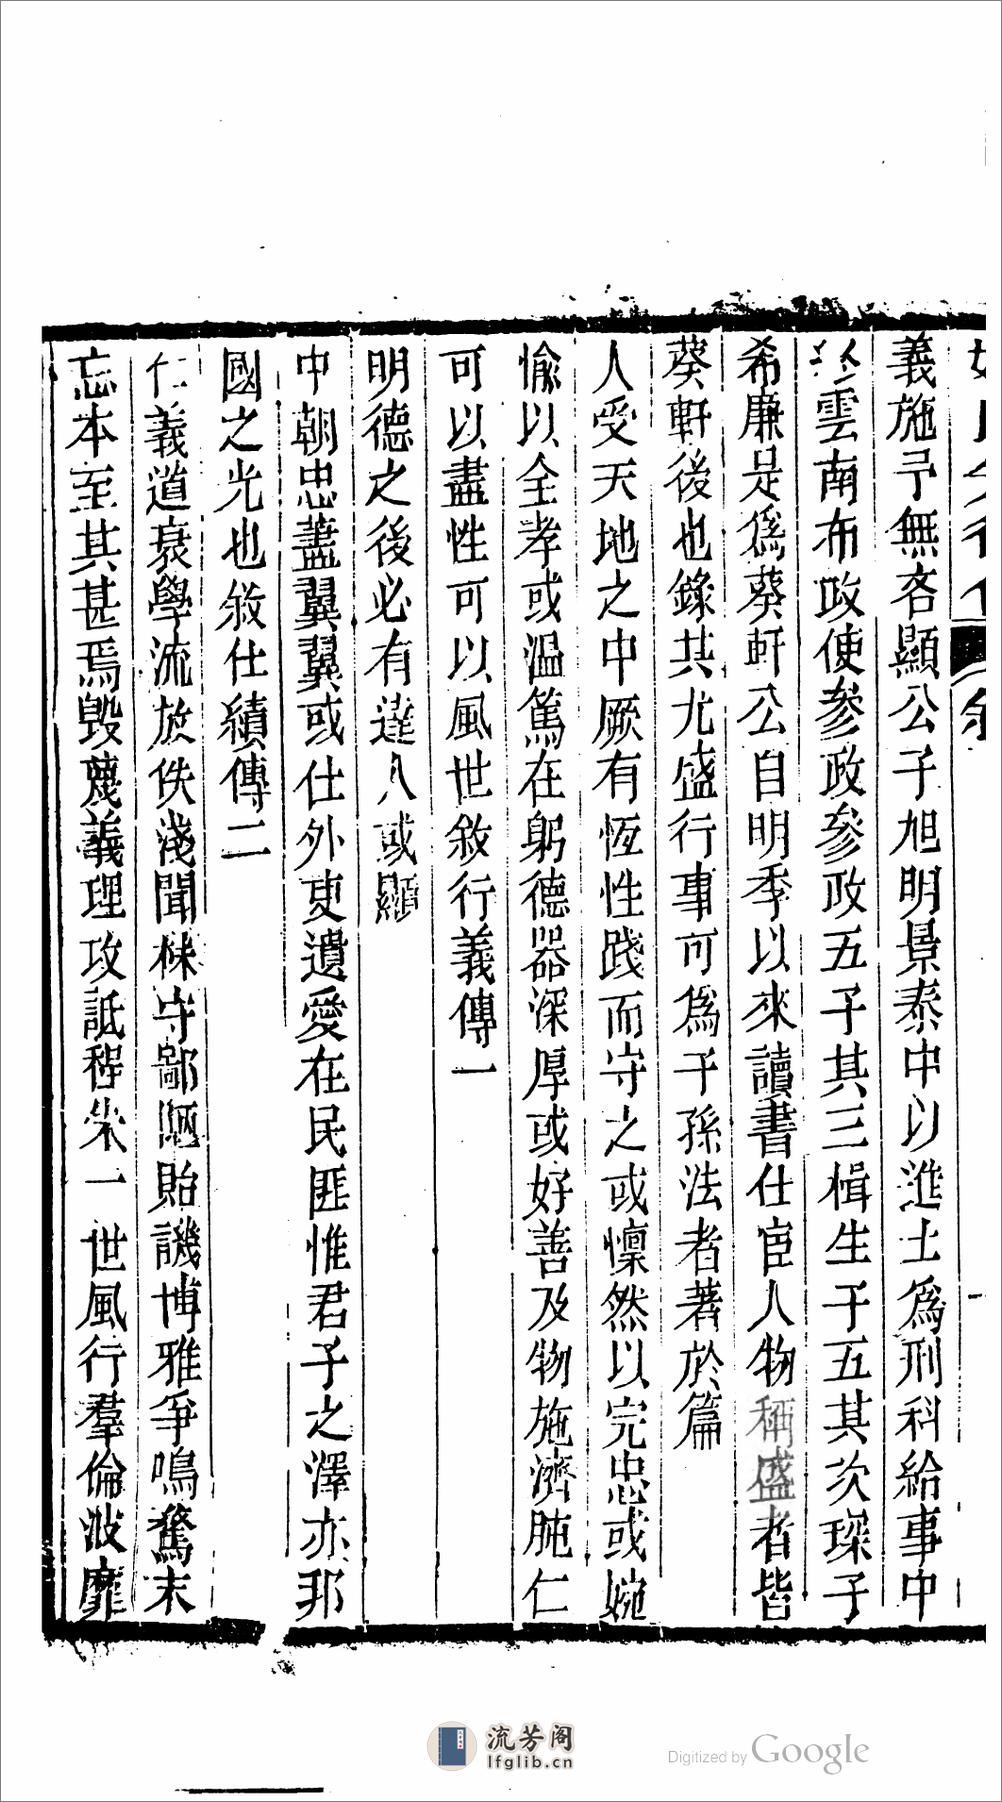 義施予無吝顯公子旭明景泰中以進士爲刑科給事中
雲南布政使參政參政五子其三楫生子五其次琛子
希廉是爲葵軒公自明季以來讀書仕宦人物稱盛者皆
葵軒後也錄其尤盛行事可爲子孫法者著於篇
人受天地之中厥有恆性踐而守之或懍然以完忠或婉
愉以全孝或溫篤在躬德器深厚或好善及物施濟肫仁
可以盡性可以風世敘行義傳一
明德之後必有達人或顯
中朝忠藎翼翼或仕外吏遺愛在民匪惟君子之澤亦邦
國之光也敘仕績傳二
仁義道衰學流放佚淺聞株守鄙陋貽譏博雅爭鳴騖末
忘本至其甚焉毀蔑義理攻詆程朱一世風行羣倫波靡
流芳阁
lfglib.cn
Digitized by Google